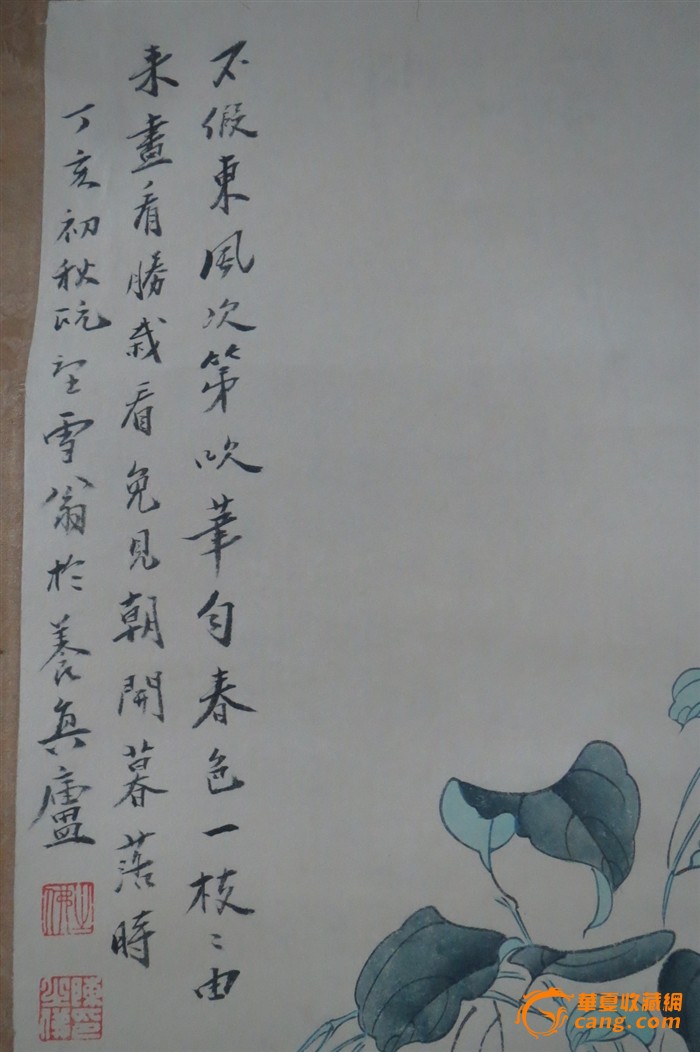 不假東風次第吹華勻春色一枝〻由
来畫看勝栽看免見朝開暮落時
丁亥初秋阮望雪翁於養真廬
華夏收藏網
cang.com